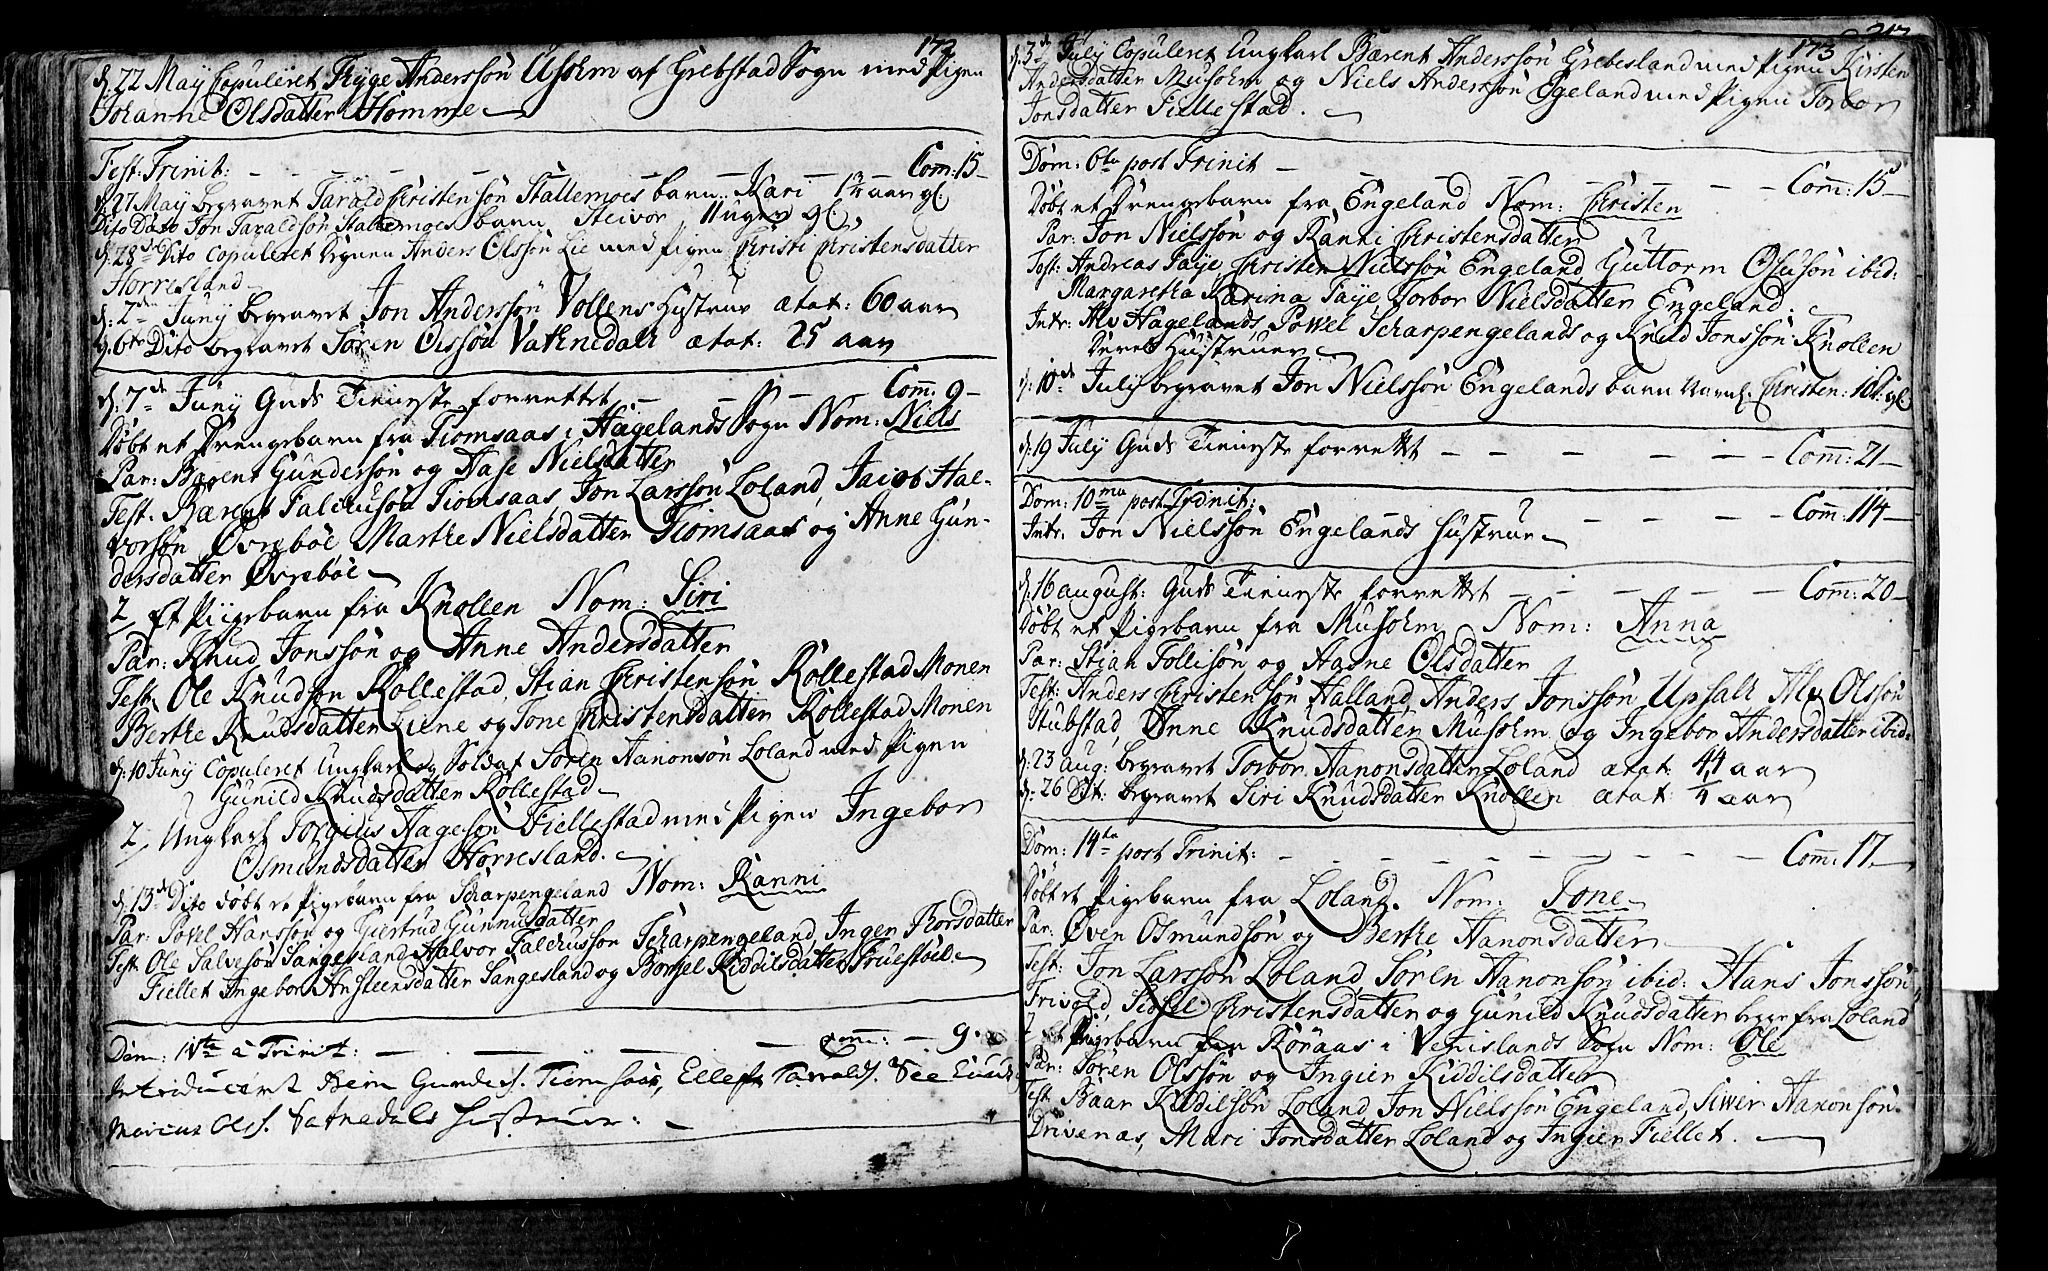 172
d: 22 May Copuleret Tryge Anderssøn Usholm af Grebstad Sogn med Pigen
Johanne Olsdatter Homme
Fest: Trinit: Com: 15
d. 27 May begravet Tarald Christensøn Stallemoes barn Kari aar gl.
Dito Dato Jon Taraldsøn Stallemoes barn Steivor 11 uger gl.
d. 28 Dito Copuleret Anders Olssøn Lie med Pigen Christi Christensdatter
Horresland
d: 2den Juny begravet Jon Anderssøn Vollens Hustrue ætat: 60 aar
d. 6te Dito begravet Søren Olssøn Vatnedals ætat: 25 aar
d: 7de Juny Guds Tieneste forrettet Com: 9
Døbt et Drengebarn fra Tiomsaas i Hægelands Sogn Nom: Niels
Par: Bærent Gundersøn og Aase Nielsdatter
Test. Bærent Falchusøn Tiomsaas, Jon Larssøn Loland, Jacob Hal-
vorsøn Øvrebøe, Marthe Nielsdatter Tiomsaas og Anne Gun-
dersdatter Øvrebøe
2, Et Pigebarn fra Knollen Nom: Siri
Par: Knud Jonssøn og Anne Andersdatter
Test: Ole Knudsøn Rollestad, Stian Christensøn Rollestad Monen
Berthe Knudsdatter Liene og Tone Christensdatter Rollestad Monen
d: 10 Juny Copuleret Ungkarl og Soldat Søren Aanonsøn Loland med Pigen
Gunild Knudsdatter Rollestad
2, Ungkarl Torgius Aagesøn Fiellestad med Pigen Ingebor
Osmundsdatter Horresland.
d. 13de Dito døbt et Pigebarn fra Scharpengeland Nom: Ranni
Par: Povel Hanssøn og Giertrud Gunnufsdatter
Test: Ole Salvesøn Sangesland Halvor Falchussøn Scharpengeland, Inger Thorsdatter
Fiellet Ingebor Austeensdatter Sangesland og Borgel Kiddilsdatter Truestøel
Dom: 4te à Trinit: Comm: 9.
Introduceret Beren Gunders. Tiomsaas, Ellef Taralds.
Marcus Ols. Vatnedals Hustruer:
173 217
d. 3de July Copuleret Ungkarl Bærent Anderssøn Grebesland med Pigen Kirsten
Andersdatter Musholm og Niels Anderssøn Egeland med Pigen Torbor
Jonsdatter Fiellestad.
Dom: 6te post Trinit Com: 15
Døbt et Drengebarn fra Engeland Nom: Christen
Par: Jon Nielssøn og Ranni Christensdatter
Test: Andreas Faye Christen Nielssøn Engeland, Guttorm Osusøn ibid:
Margaretha Karina Faye, Torbor Nielsdatter Engeland.
Intr: Alv Hagelands, Powel Scharpengelands og Knud Jonssøn Knollen
Deres Hustruer
d: 10de July begravet Jon Nielssøn Engelands barn navnl. Christen: gl.
d: 19 July Guds Tieneste forrettet Com: 21
Dom: 10ma post Trinit: Com: 114
Intr: Jon Nielssøn Engelands Hustrue
d: 16 august: Guds Tieneste forrettet Com: 20
Døbt et Pigebarn fra Musholm Nom: Anna
Par: Stian Tollisøn og Aasne Olsdatter
Test: Anders Christensøn Halland, Anders Jonssøn Upsall, Alv Olssøn
Stubstad, Anne Knudsdatter Musholm og Ingebor Andersdatter ibid:
d: 23 aug: begravet Torbor Aanonsdatter Loland ætat: 44 aar
d: 26 Dit: begravet Siri Knudsdatter Knollen ætat: 1/4 aar
Dom: 14te post Trinit: Com: 17
Døbt et Pigebarn fra Loland. Nom: Tone
Par: Øven Osmundsøn og Berthe Aanonsdatter
Test: Jon Larssøn Loland, Søren Aanonsøn ibid: Hans Jonssøn
Trivold, Sidsel Christensdatter og Gunild Knudsdatter begge fra Loland
2, et Pigebarn fra Røraas i Venislands Sogn Nom: Ole
Par: Søren Olssøn og Ingier Kiddilsdatter
Test: Baar Kiddilsøn Loland, Jon Nielssøn Engeland, Siwer Aanonsøn
Drivenæs, Mari Jonsdatter Loland og Ingier Fiellet.